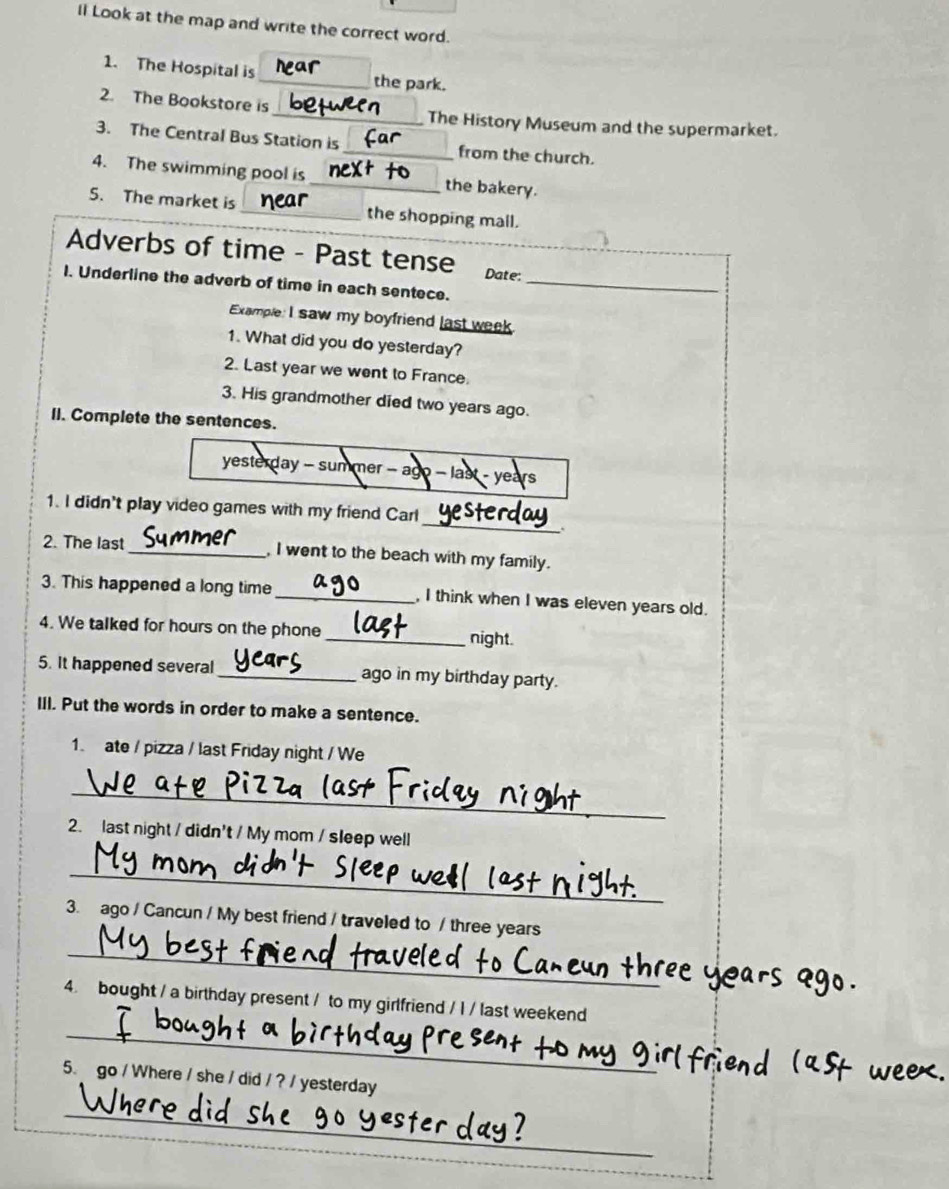 II Look at the map and write the correct word.
1. The Hospital is near the park.
2. The Bookstore is between The History Museum and the supermarket.
3. The Central Bus Station is far from the church.
4. The swimming pool is next to the bakery.
5. The market is near the shopping mall.
Adverbs of time - Past tense Date:
I. Underline the adverb of time in each sentece.
Example: I saw my boyfriend last week.
1. What did you do yesterday?
2. Last year we went to France.
3. His grandmother died two years ago.
II. Complete the sentences.
yesterday – summer – ago – last - years
1. I didn't play video games with my friend Carl yesterday.
2. The last Summer, I went to the beach with my family.
3. This happened a long time ago, I think when I was eleven years old.
4. We talked for hours on the phone last night.
5. It happened several years ago in my birthday party.
III. Put the words in order to make a sentence.
1. ate / pizza / last Friday night / We
We ate pizza last Friday night.
2. last night / didn't / My mom / sleep well
My mom didn't sleep well last night.
3. ago / Cancun / My best friend / traveled to / three years
My best friend traveled to Cancun three years ago.
4. bought / a birthday present / to my girlfriend / I / last weekend
I bought a birthday present to my girlfriend last week.
5. go / Where / she / did / ? / yesterday
Where did she go yesterday?